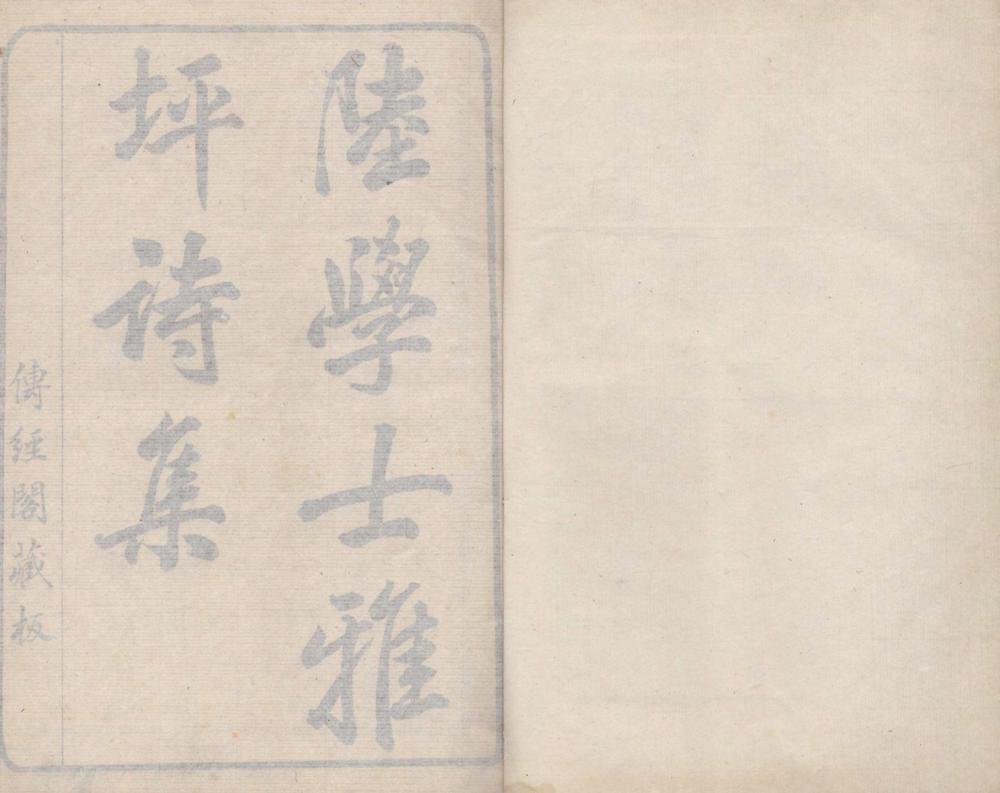 陸學士雅
坪詩集
傳經閣藏板